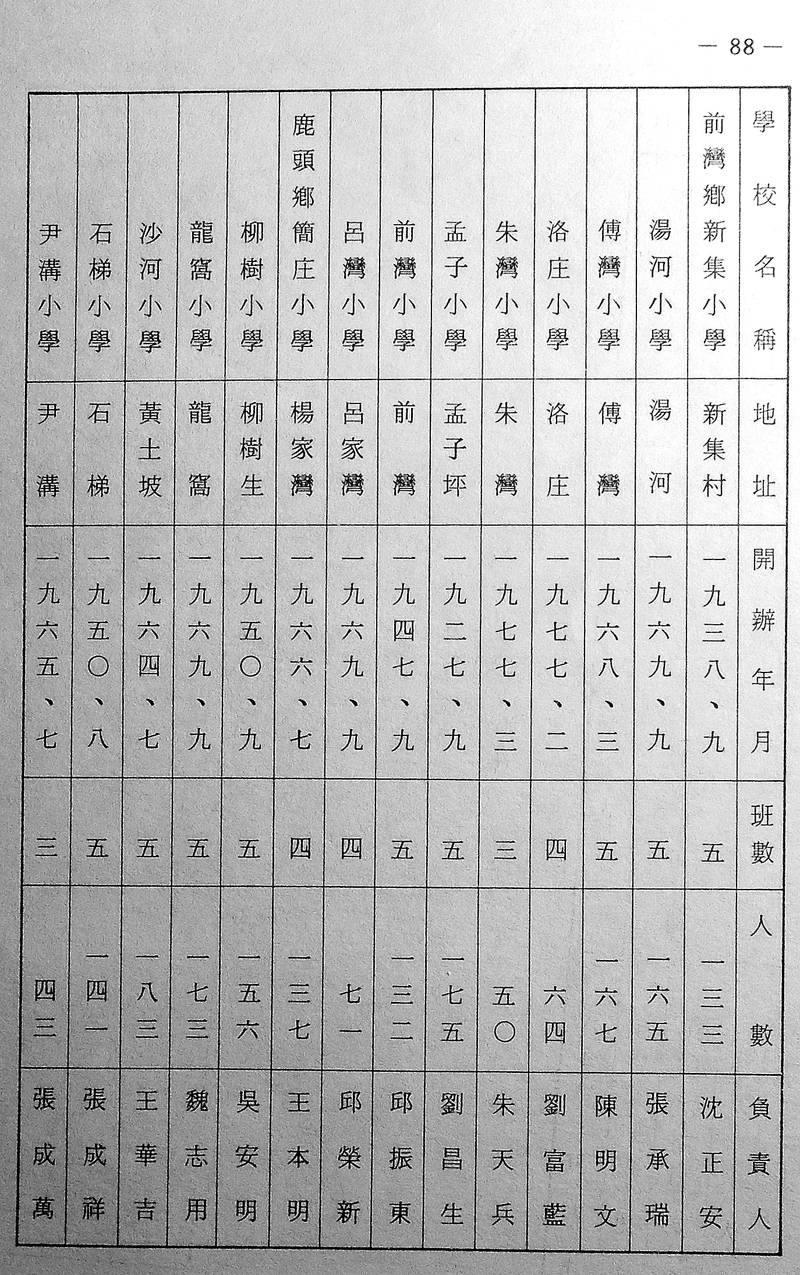 — 88 —
學校名稱 地址 開辦年月 班數 人數 負責人
前灣鄉新集小學 新集村 一九三八、九 五 一三三 沈正安
湯河小學 湯河 一九六九、九 五 一六五 張承瑞
傅灣小學 傅灣 一九六八、三 五 一六七 陳明文
洛庄小學 洛庄 一九七七、二 四 六四 劉富藍
朱灣小學 朱灣 一九七七、三 三 五〇 朱天兵
孟子小學 孟子坪 一九二七、九 五 一七五 劉昌生
前灣小學 前灣 一九四七、九 五 一三二 邱振東
呂灣小學 呂家灣 一九六九、九 四 七一 邱榮新
鹿頭鄉簡庄小學 楊家灣 一九六六、七 四 一三七 王本明
柳樹小學 柳樹生 一九五〇、九 五 一五六 吳安明
龍窩小學 龍窩 一九六九、九 五 一七三 魏志用
沙河小學 黃土坡 一九六四、七 五 一八三 王華吉
石梯小學 石梯 一九五〇、八 五 一四一 張成祥
尹溝小學 尹溝 一九六五、七 三 四三 張成萬